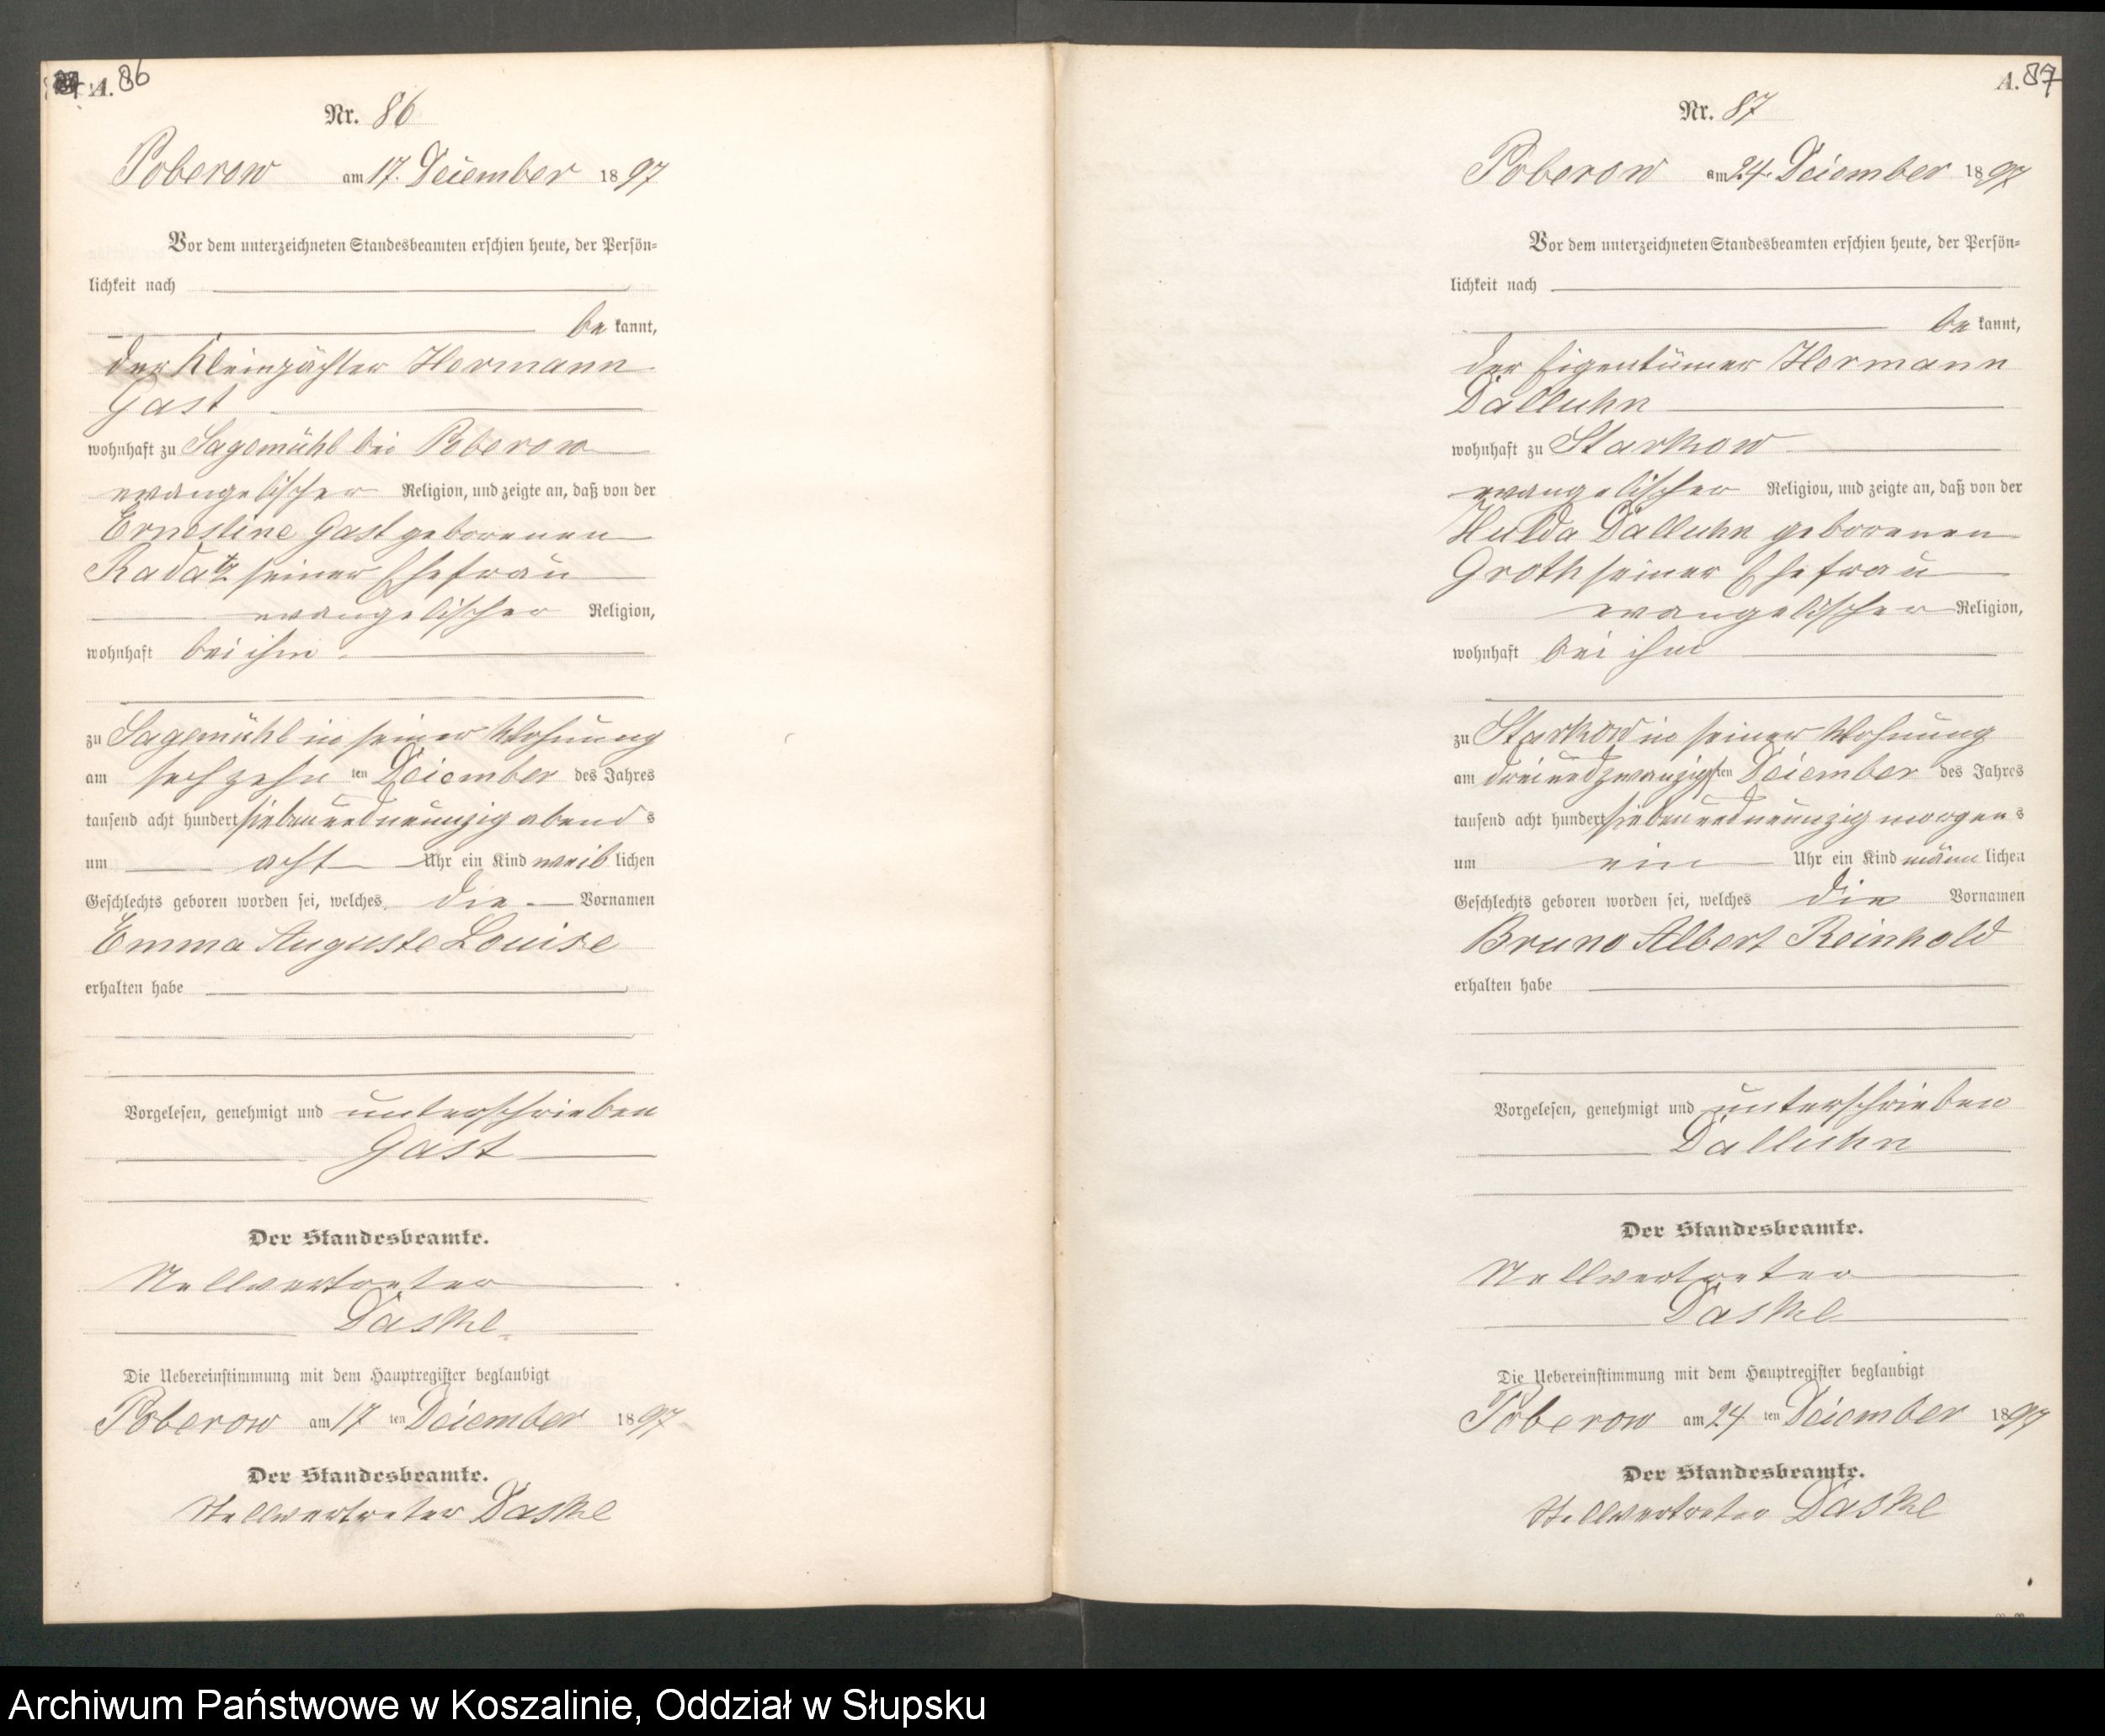 A. 86
Nr. 86
Poberow am 17. Dezember 1897
Vor dem unterzeichneten Standesbeamten erschien heute, der Persön-
lichkeit nach
be kannt,
der Kleinpächter Hermann
Gast
wohnhaft zu Sagemühl bei Poberow
evangelischer Religion, und zeigte an, daß von der
Ernestine Gast geborenen
Radatz seiner Ehefrau
evangelischer Religion,
wohnhaft bei ihm
zu Sagemühl in seiner Wohnung
am sechzehn ten Dezember des Jahres
tausend acht hundert siebenundneunzig abends
um acht Uhr ein Kind weiblichen
Geschlechts geboren worden sei, welches die Vornamen
Emma Auguste Louise
erhalten habe
Vorgelesen, genehmigt und unterschrieben
Gast
Der Standesbeamte.
Stellvertreter
Daske
Die Uebereinstimmung mit dem Hauptregister beglaubigt
Poberow am 17 ten Dezember 1897
Der Standesbeamte.
Stellvertreter Daske
A. 87
Nr. 87
Poberow am 24. Dezember 1897
Vor dem unterzeichneten Standesbeamten erschien heute, der Persön-
lichkeit nach
be kannt,
der Eigentümer Hermann
Dalluhn
wohnhaft zu Starkow
evangelischer Religion, und zeigte an, daß von der
Hulda Dalluhn geborenen
Groth seiner Ehefrau
evangelischer Religion,
wohnhaft bei ihm
zu Starkow in seiner Wohnung
am dreiundzwanzigsten Dezember des Jahres
tausend acht hundert siebenundneunzig morgens
um ein Uhr ein Kind männlichen
Geschlechts geboren worden sei, welches die Vornamen
Bruno Albert Reinhold
erhalten habe
Vorgelesen, genehmigt und unterschrieben
Dalluhn
Der Standesbeamte.
Stellvertreter
Daske
Die Uebereinstimmung mit dem Hauptregister beglaubigt
Poberow am 24 ten Dezember 1897
Der Standesbeamte.
Stellvertreter Daske
Archiwum Państwowe w Koszalinie, Oddział w Słupsku